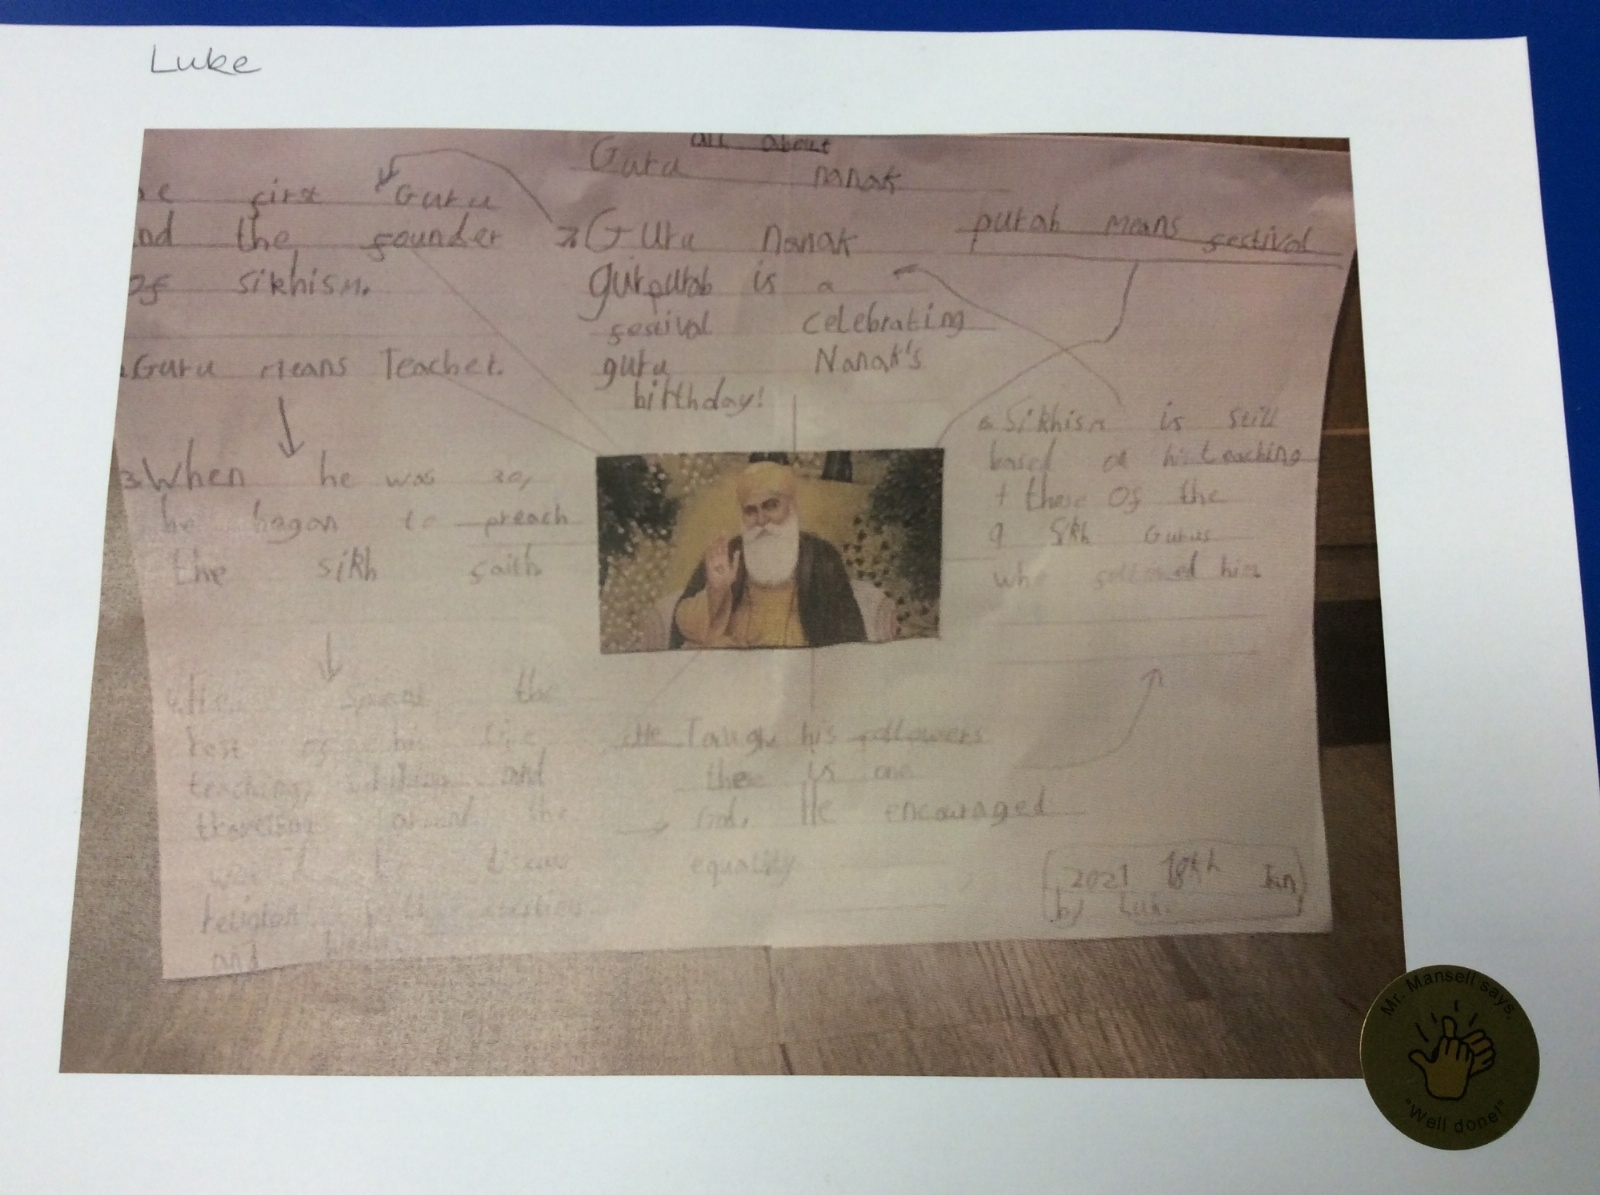 Luke
all about
Guru nanak
first Guru
nd the founder
of sikhism.
Guru means Teacher.
3.When he was 30,
he began to preach
the sikh faith
He spent the
rest of his life
teaching and
around the
religion
and
7.Guru nanak
gurpurab is a
festival celebrating
guru Nanak's
birthday!
purab means festival
6 Sikhism is still
based on his teaching
+ those of the
9 Sikh Gurus
who followed him
He Taught his followers
there is one
God. He encouraged
equality
2021 18th Jan
by Luke
Mr. Mansell says,
"Well done!"